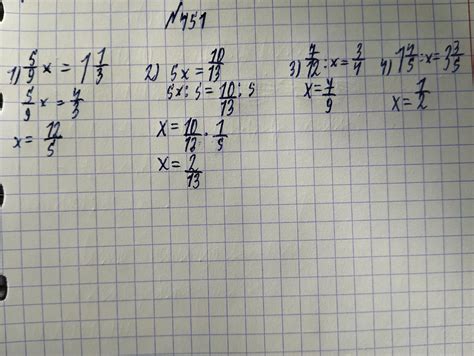 № 451
1) 5/9 x = 1 1/3
5/9 x = 4/3
x = 12/5
2) 5x = 10/13
5x : 5 = 10/13 : 5
x = 10/13 · 1/5
x = 2/13
3) 7/12 : x = 3/4
x = 7/9
4) 1 4/5 : x = 3 3/5
x = 1/2